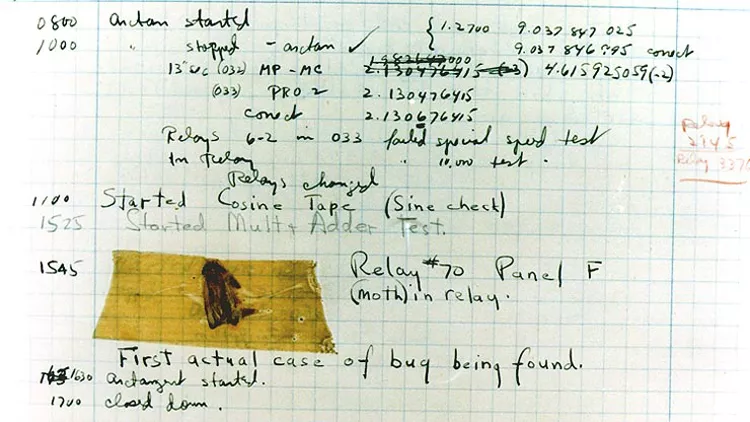 0800 arctan started { 1.2700 9.037 847 025
1000 " stopped - arctan ✓ 9.037 846 995 conect
13" uc (032) MP - MC 2.130476415 (-3) 4.615925059(-2)
(033) PRO 2 2.130476415
conect 2.130676415
Relays 6-2 in 033 failed special speed test
In Relay " 10.000 test .
Relays changed
Relay
2145
Relay 3370
1100 Started Cosine Tape (Sine check)
1525 Started Mult + Adder Test.
1545 Relay #70 Panel F
(moth) in relay.
First actual case of bug being found.
1630 arctangent started.
1700 closed down.